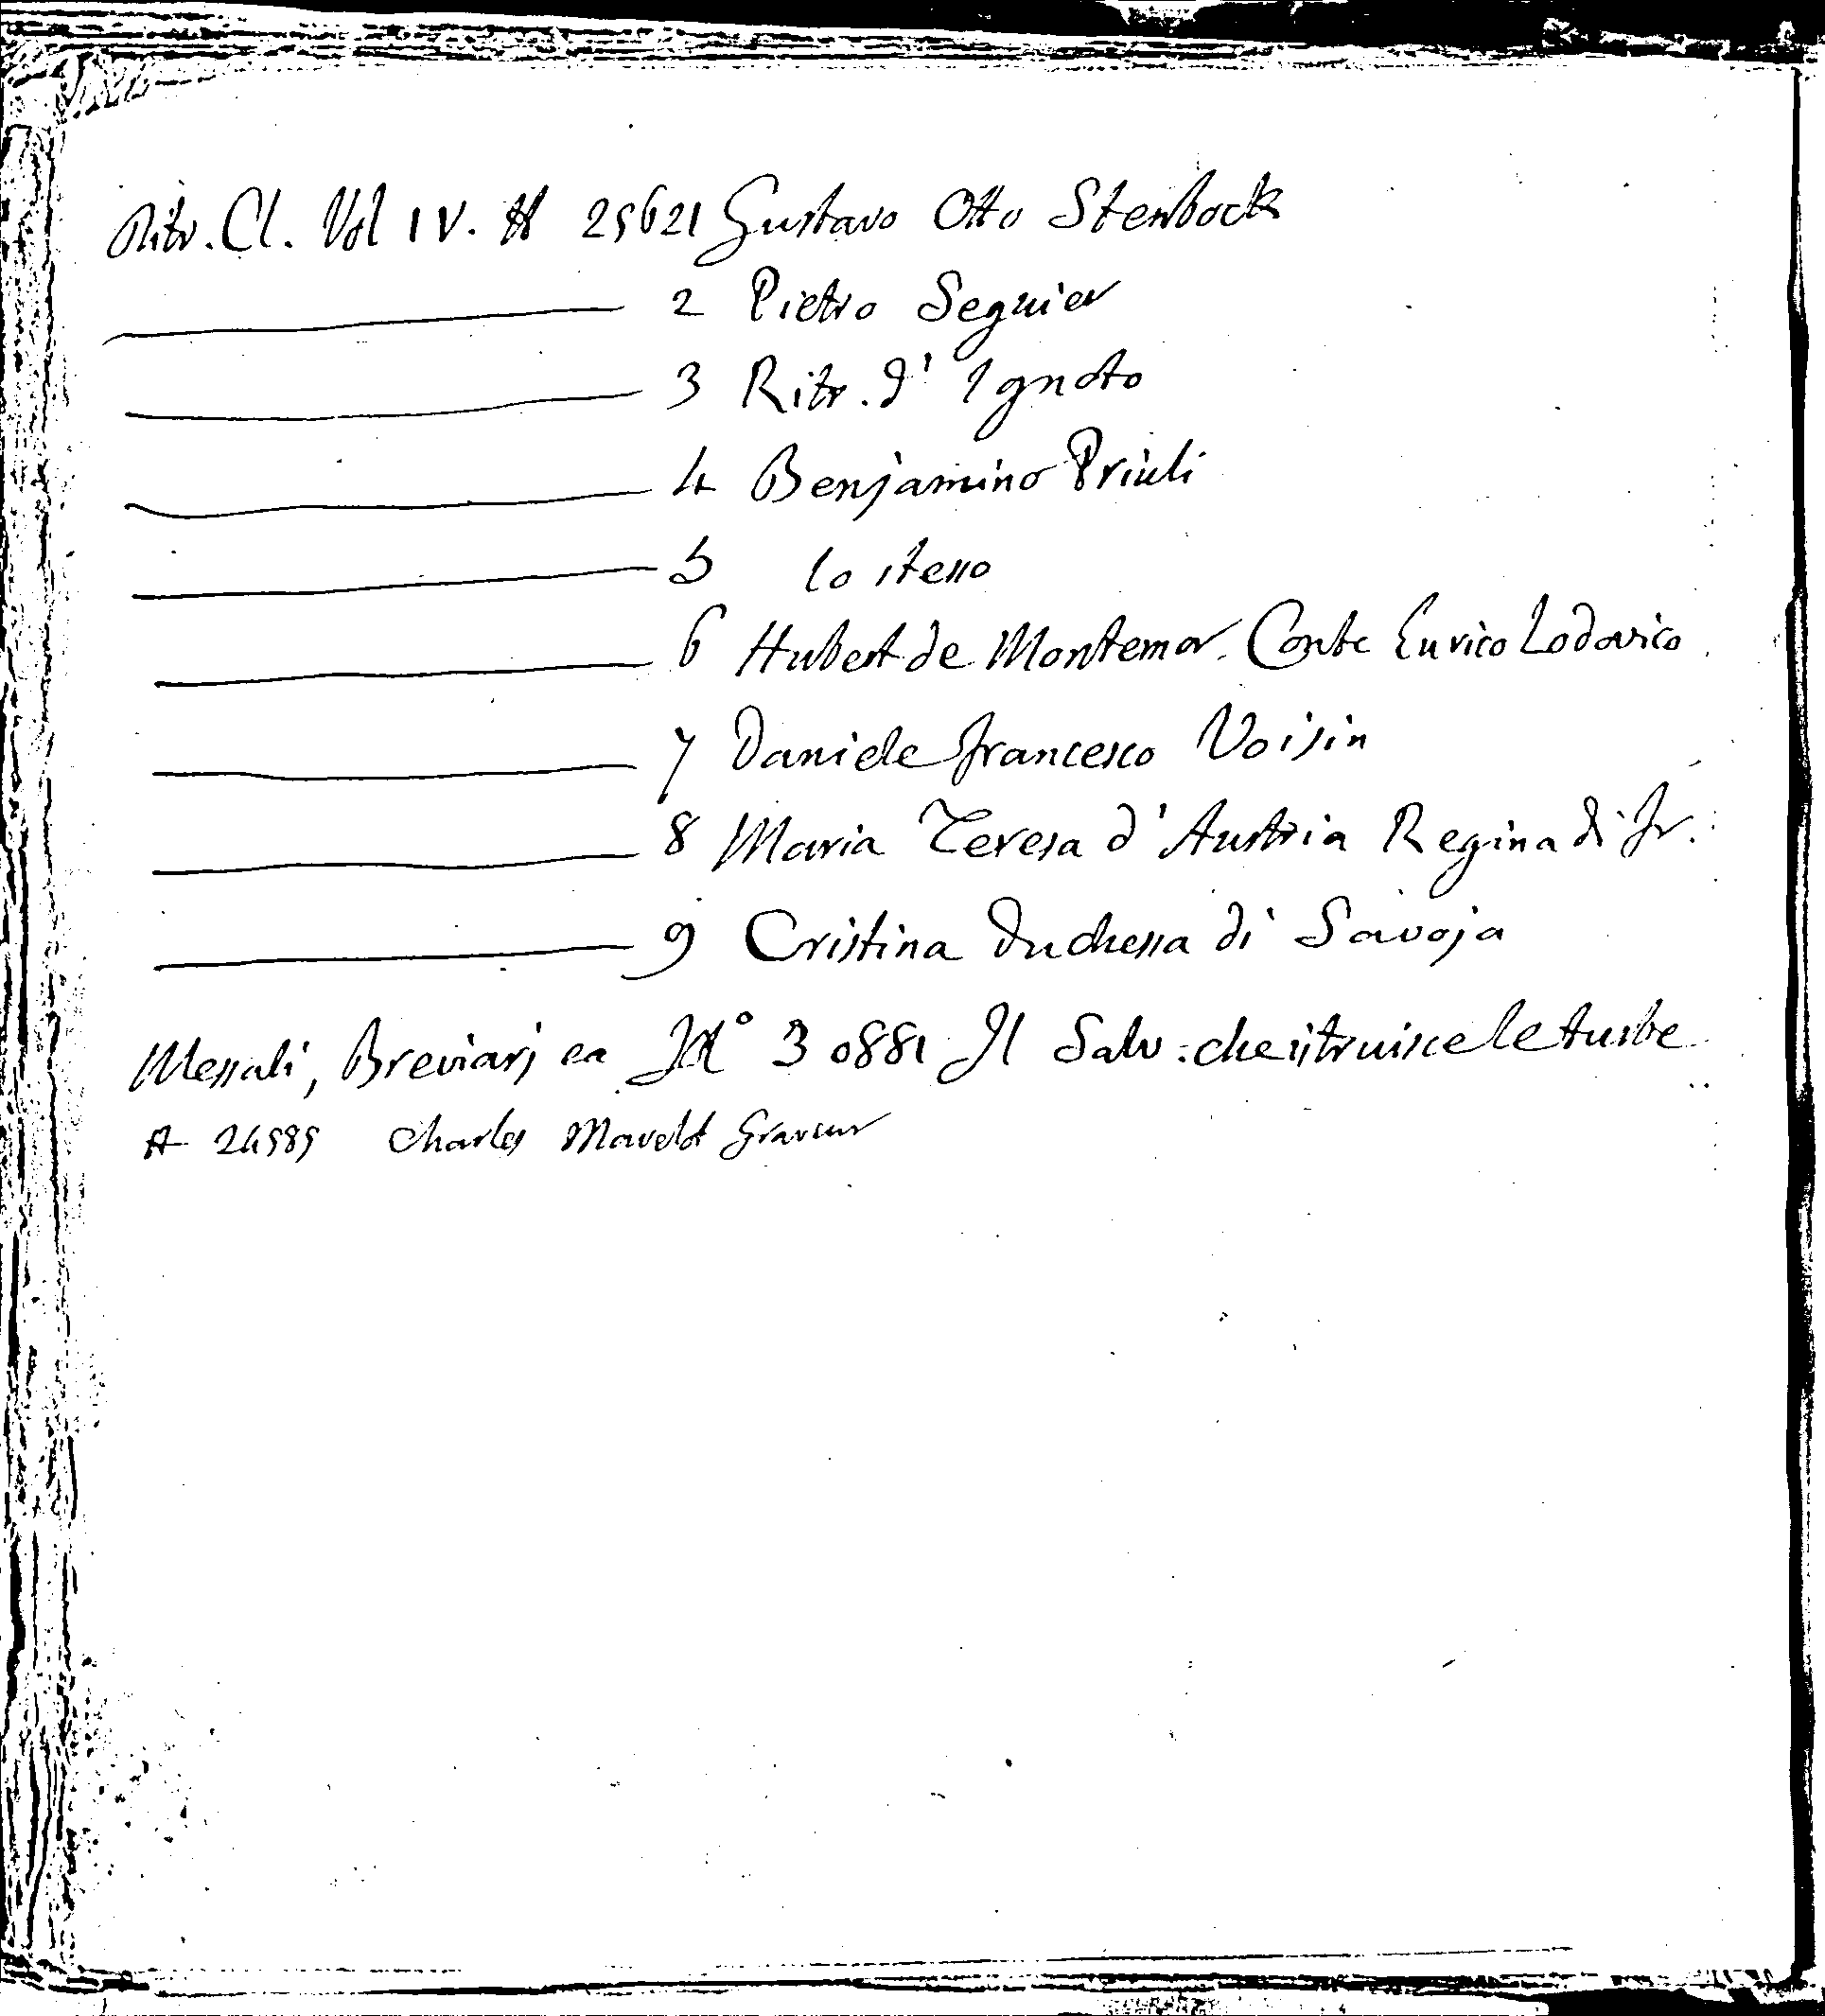 Ritr. Cl. Vol IV. H 25621 Gustavo Otto Stenbock
2 Pietro Seguier
3 Ritr. d' Ignoto
4 Benjamino Priuli
5 lo stesso
6 Hubert de Montemor. Conte Enrico Lodovico
7 Daniele Francesco Voisin
8 Maria Teresa d'Austria Regina di Fr.
9 Cristina Duchessa di Savoja
Messali, Breviarj ea N° 30881 Il Salv: che istruisce le turbe
A 24585 Charles Mavelot Graveur